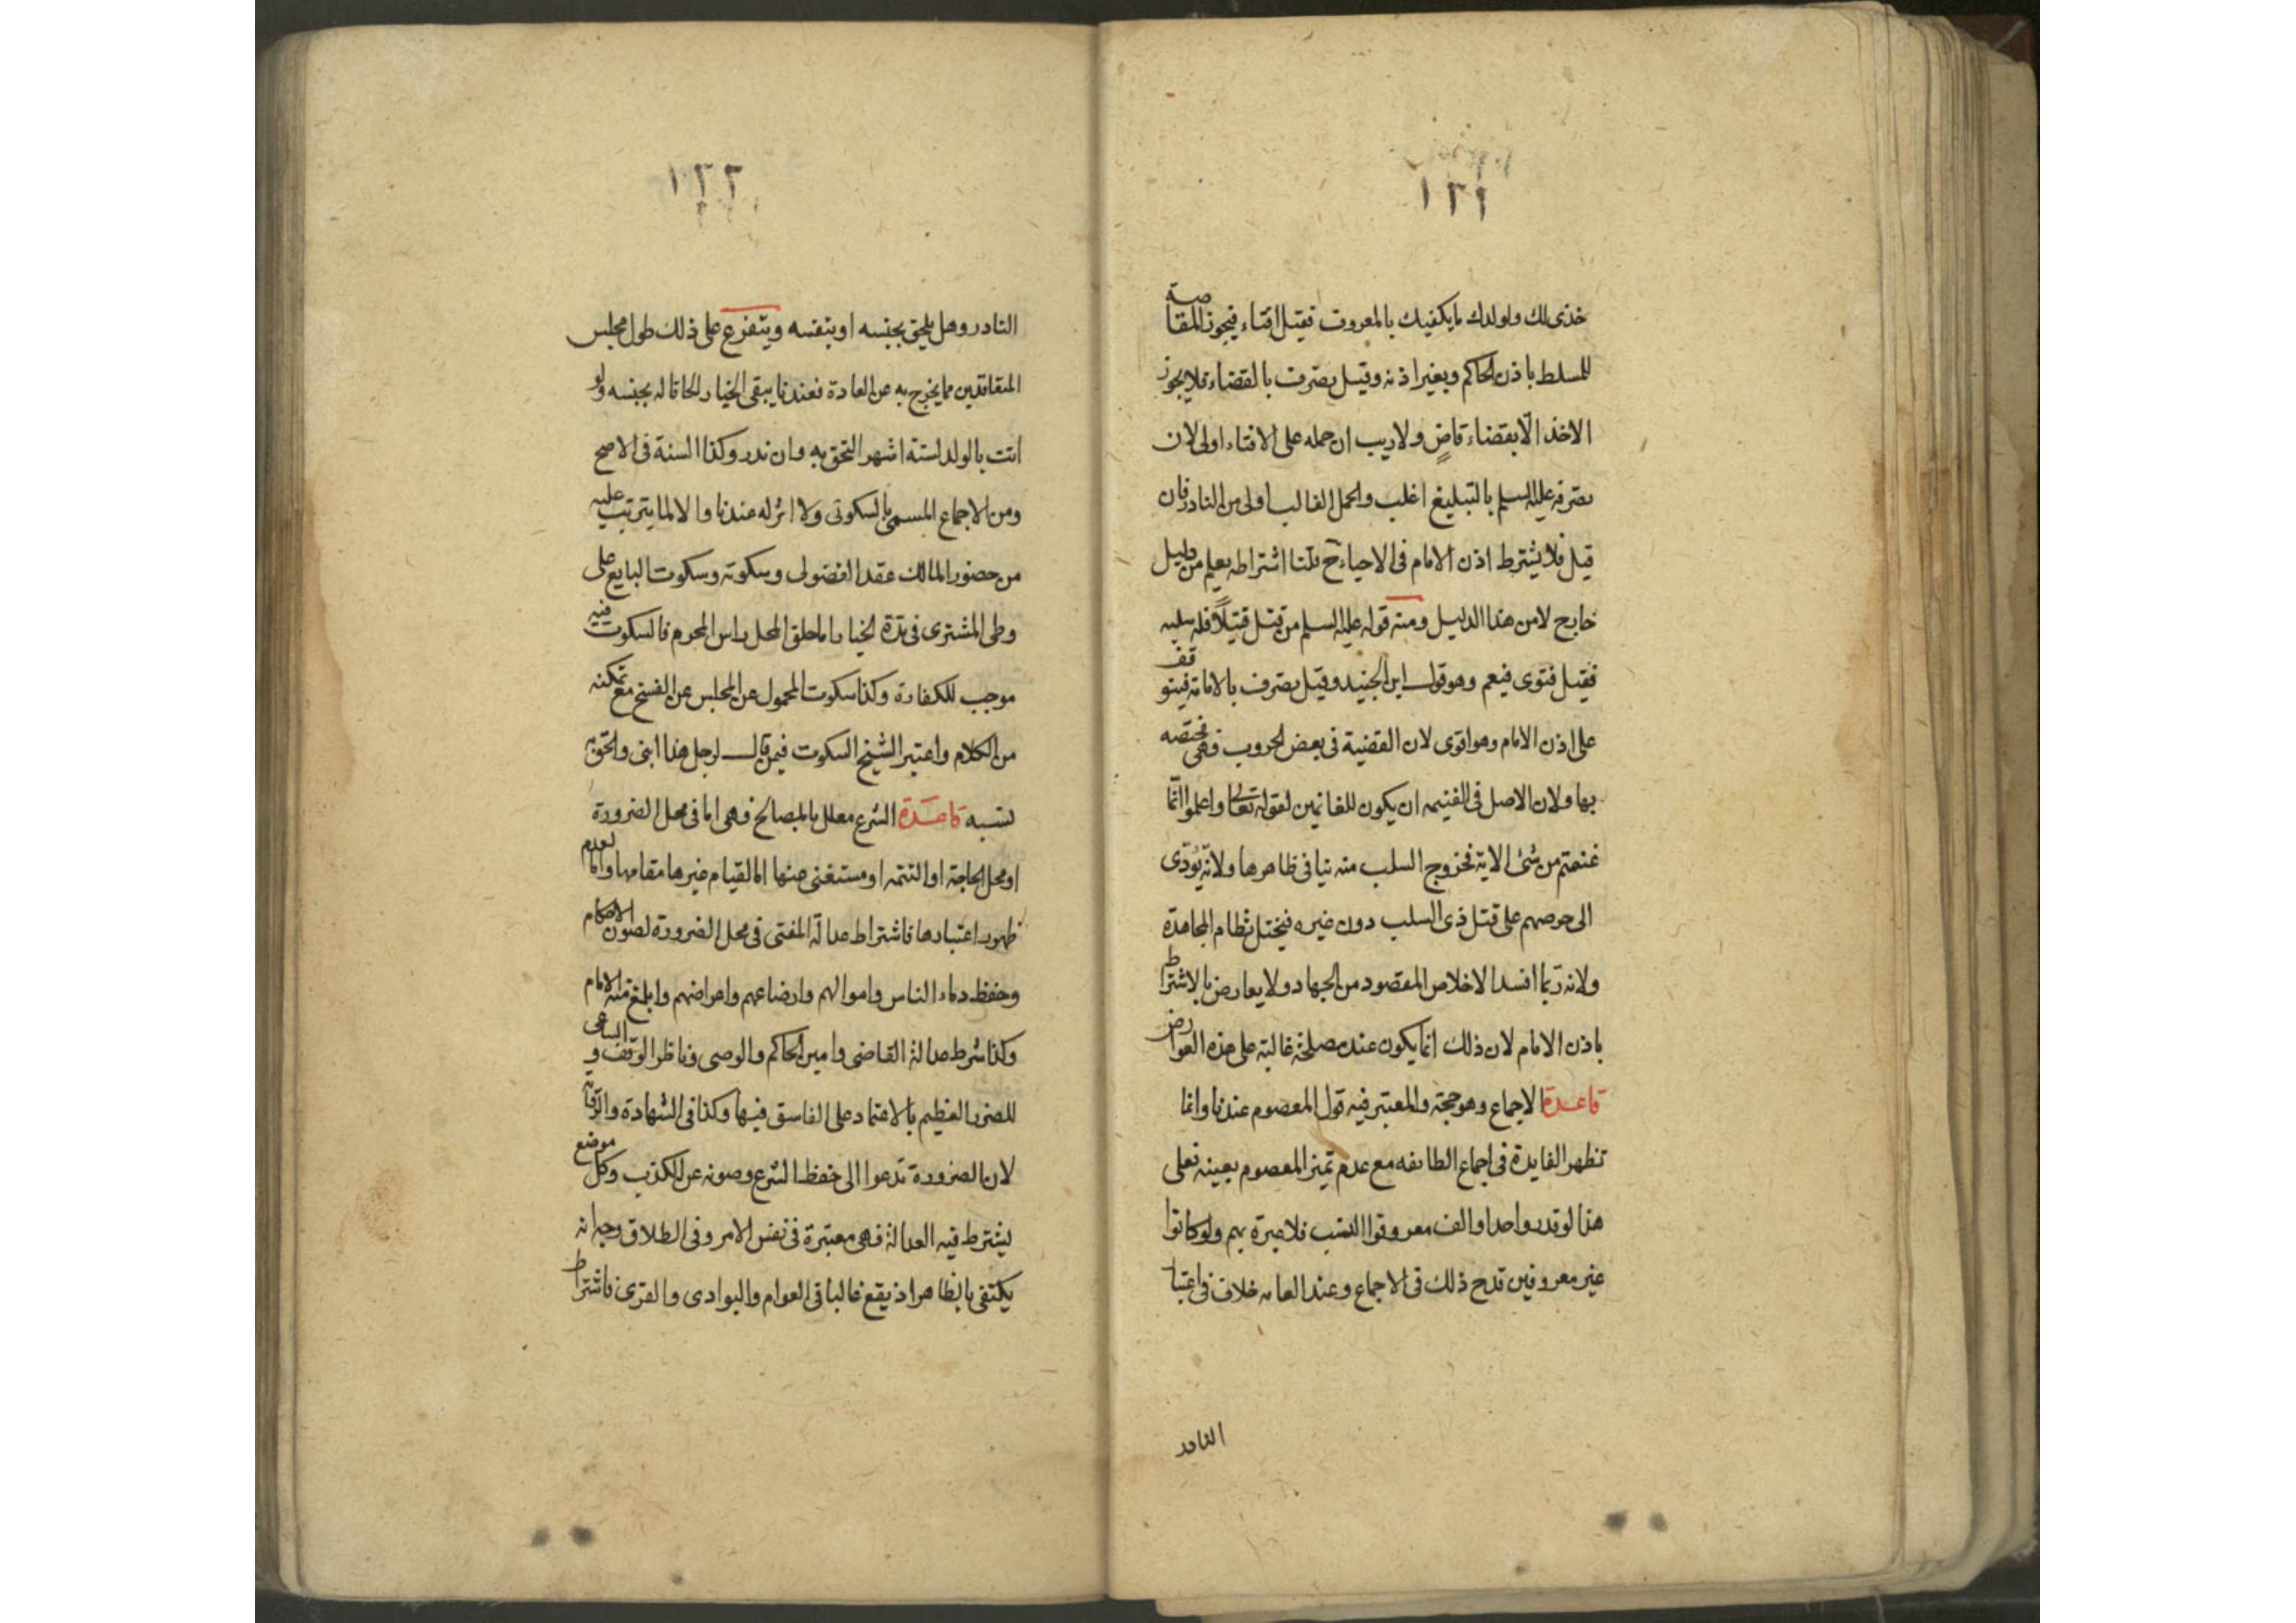 ١٢١
خذى لك ولولدك ما يكفيك بالمعروف فقيل افتاء فيجوز المقاصة
للمسلط باذن الحاكم وبغير اذنه وقيل تصرف بالقضاء فلا يجوز
الاخذ الّا بقضاء قاضٍ ولا ريب ان حمله على الافتاء اولى لان
تصرفه عليه السلم بالتبليغ اغلب والحمل الغالب اولى من النادر فان
قيل فلا يشترط اذن الامام فى الاحياء ح قلنا اشتراطه يعلم من دليل
خارج لا من هذا الدليل ومنه قوله عليه السلم من قتل قتيلًا فله سلبه
فقيل فتوى فيعم وهو قول ابن الجنيد وقيل تصرف بالامامة فيتوقف
على اذن الامام وهو اقوى لان القضية فى بعض الحروب فهى مختصه
بها ولان الاصل فى الغنيمه ان يكون للغانمين لقوله تعالى واعلموا انّما
غنمتم من شئ الاية فخروج السلب منه ينافى ظاهرها ولانه يؤدّى
الى حرصهم على قتل ذى السلب دون غيره فيختل نظام المجاهدة
ولانه ربّما افسد الاخلاص المقصود من الجهاد ولا يعارض بالاشتراط
باذن الامام لان ذلك انما يكون عند مصلحة غالبة على هذه العوارض
قاعدة الاجماع وهو حجة والمعتبر فيه قول المعصوم عندنا وانما
تظهر الفايدة فى اجماع الطايفه مع عدم تميز المعصوم بعينه فعلى
هذا لو قدر واحد او الف معروفوا النسب فلا عبرة بهم ولو كانوا
غير معروفين قدح ذلك فى الاجماع وعند العامه خلاف فى اعتبار
النادر
١٢٢
النادر وهل يلحق بجنسه او بنفسه ويتفرع على ذلك طول مجلس
المتعاقدين مما يخرج به عن العادة فعندنا يبقى الخيار الحاقا له بجنسه ولو
اتت بالولد لستة اشهر التحق به وان ندر وكذا السنة فى الاصح
ومن الاجماع المسمى بالسكوتى ولا اثر له عندنا والا لما يترتب عليه
من حضور المالك عقد الفضولى وسكوته وسكوت البايع على
وطى المشترى فى مدة الخيار اما حلق المحل راس المحرم فالسكوت فيه
موجب للكفارة وكذا سكوت المحمول عن المجلس عن الفسخ مع تمكنه
من الكلام واعتبر الشيخ السكوت فيمن قال لرجل هذا ابنى والحق به
نسبه قاعدة الشرع معلل بالمصالح فهى اما فى محل الضرورة
او محل الحاجة او التتمه او مستغنى عنها اما لقيام غيرها مقامها واما لعدم
ظهور اعتبارها فاشتراط عدالة المفتى فى محل الضرورة لصون الاحكام
وحفظ دماء الناس واموالهم وابضاعهم واعراضهم وابلغ منه الامام
وكذا شرط عدالة القاضى وامين الحاكم والوصى وناظر الوقف والساعى
للضرر العظيم بالاعتماد على الفاسق فيها وكذا فى الشهادة والرواية
لان الضرورة تدعوا الى حفظ الشرع وصونه عن الكذب وكل موضع
يشترط فيه العدالة فهى معتبرة فى نفس الامر وفى الطلاق وجه انه
يكتفى بالظاهر اذ يقع غالبا فى العوام والبوادى والقرى فاشتراط